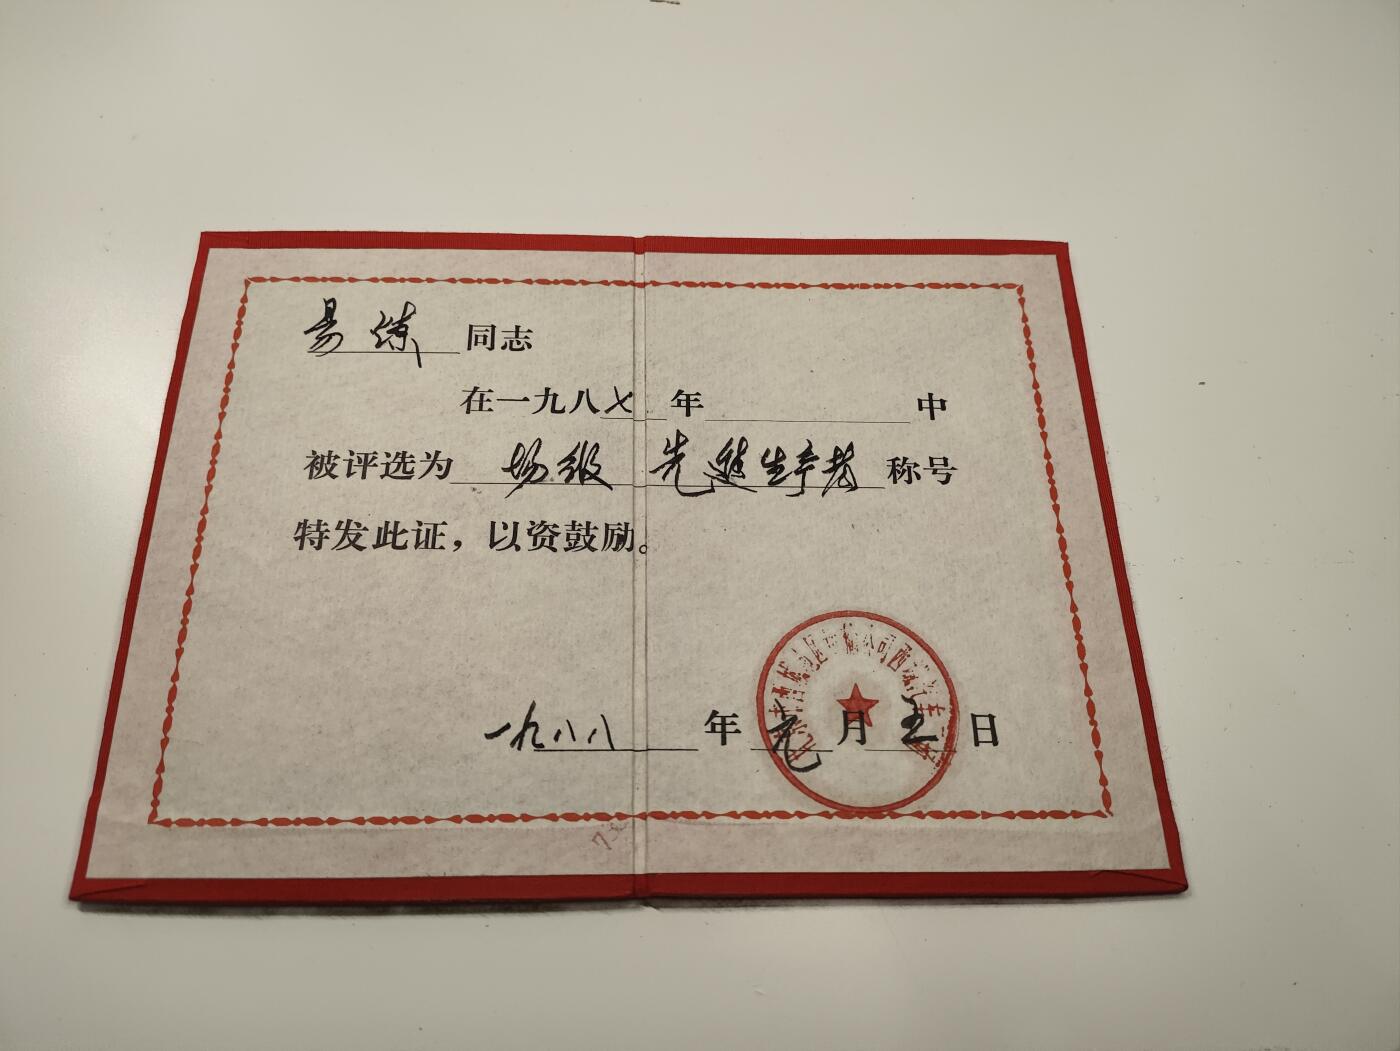 易练 同志
在一九八七年 中
被评选为 场级 先进生产者 称号
特发此证，以资鼓励。
一九八八 年 元 月 五 日